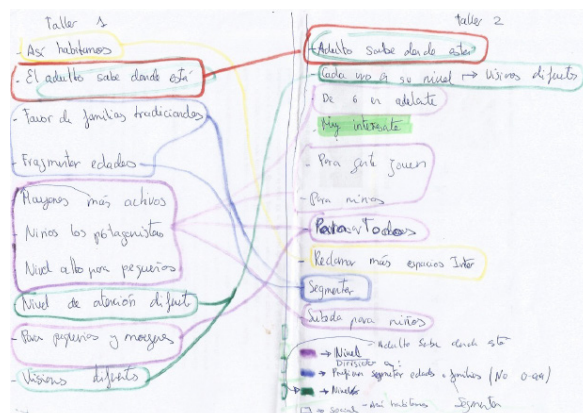 Taller 1
- Así habitamos
- El adulto sabe donde está
- Favor de familias tradicionales
- Fragmentar edades
- Mayores más activos
- Niños los protagonistas
- Nivel alto para pequeños
- Nivel de atención difert
- Para pequeños y mayores
- Visions diferts
Taller 2
- Adulto sabe donde estar
- Cada uno a su nivel → Visions diferts
- De 6 en adelante
- Muy interesate
- Para gente joven
- Para niños
- Para Todos
- Reclamar más espacios Inter
- Segmentar
- Subida para niños
- Adulto sabe donde está
→ Nivel
Dirigido a:
→ Prefieren segmentar edades + familias (No
→ Niveles
→ social - Así habitamos Segmentar